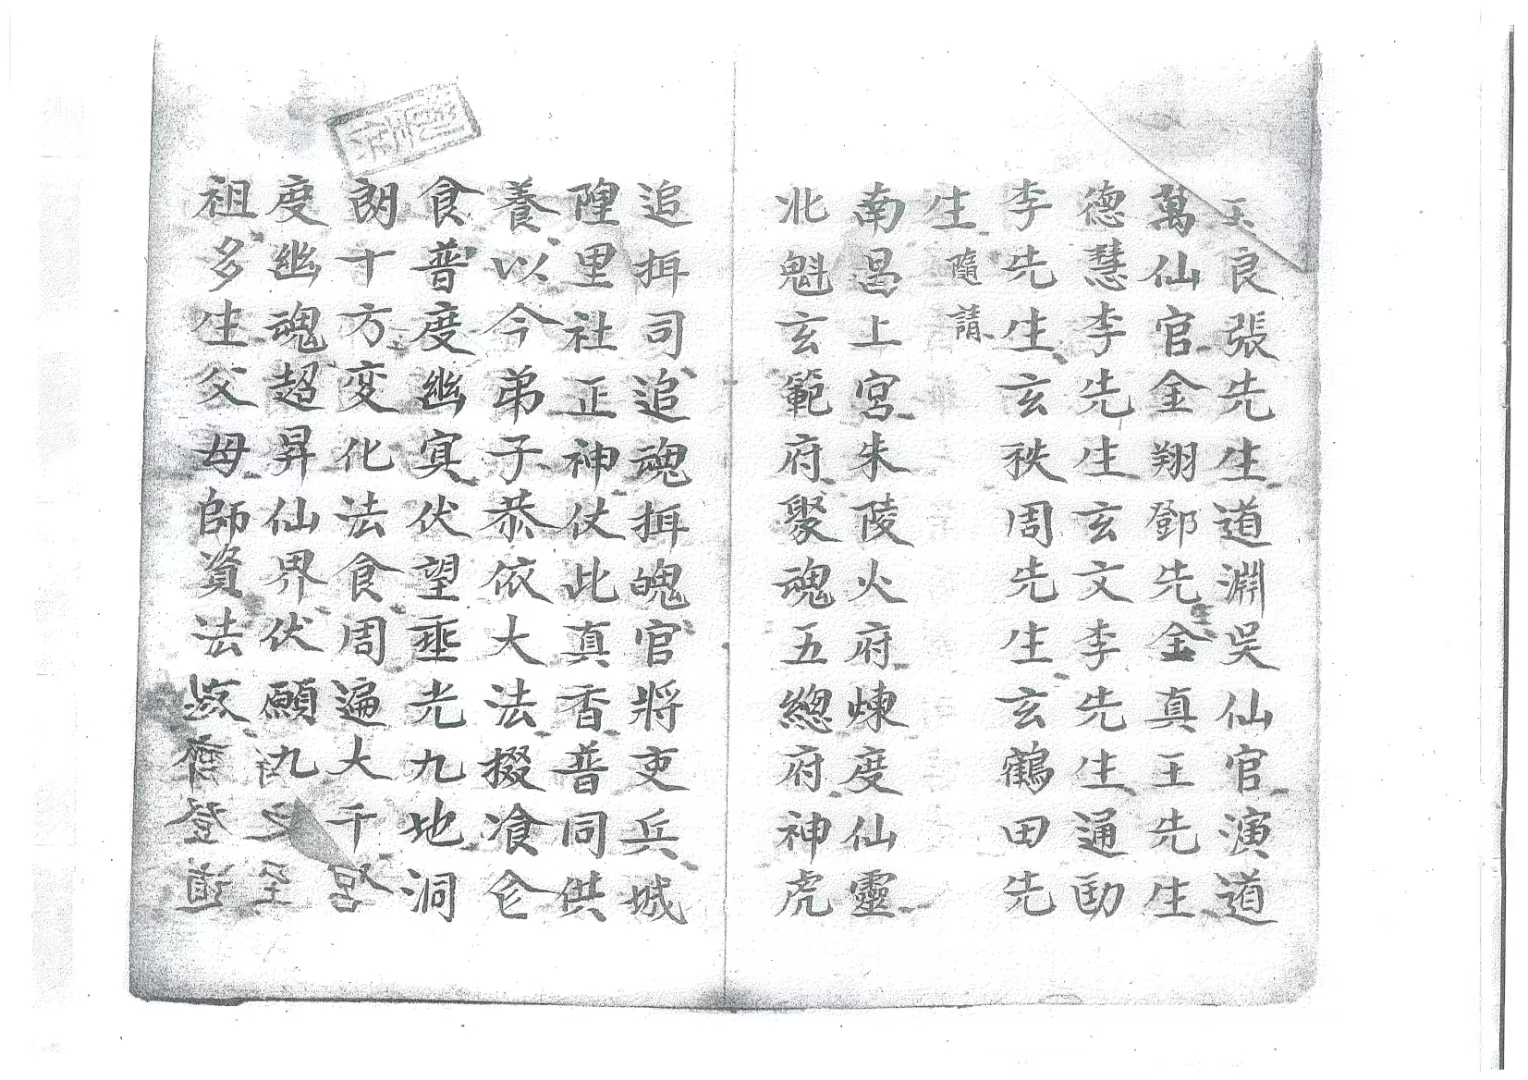 良張先生道淵吳仙官演道
萬仙官金翔鄧先金真王先生
德慧李先生玄文李先生通劻
李先生玄秩周先生玄鶴田先
生隨請
南昌上宮朱陵火府煉度仙靈
北魁玄範府聚魂五總府神虎
追㧕司追魂㧕魄官將吏兵城
隍里社正神仗此真香普同供
養以今弟子恭依大法掇飡仺
食普度幽冥伏望垂光九地洞
朗十方变化法食周遍大千
度幽魂超昇仙界伏願九
祖多生父母師資法
登道